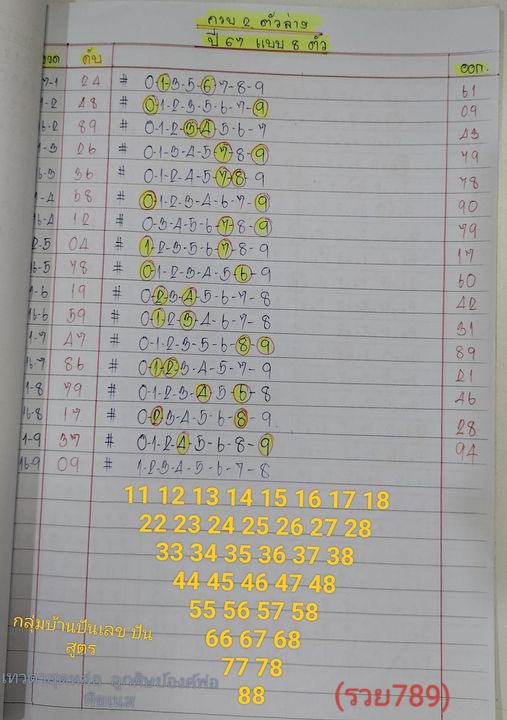 ครบ 2 ตัวล่าง
ปี 67 แบบ 8 ตัว
งวด ดับ ออก.
17-1 24 # 0-1-3-5-6-7-8-9 61
1-2 48 # 0-1-2-3-5-6-7-9 09
16-2 89 # 0-1-2-3-4-5-6-7 43
1-3 26 # 0-1-3-4-5-7-8-9 79
16-3 36 # 0-1-2-4-5-7-8-9 78
1-4 58 # 0-1-2-3-4-6-7-9 90
16-4 12 # 0-3-4-5-6-7-8-9 79
2-5 04 # 1-2-3-5-6-7-8-9 17
16-5 78 # 0-1-2-3-4-5-6-9 60
1-6 19 # 0-2-3-4-5-6-7-8 42
16-6 59 # 0-1-2-3-4-6-7-8 31
1-7 47 # 0-1-2-3-5-6-8-9 89
16-7 86 # 0-1-2-3-4-5-7-9 21
1-8 79 # 0-1-2-3-4-5-6-8 46
16-8 17 # 0-2-3-4-5-6-8-9 28
1-9 37 # 0-1-2-4-5-6-8-9 94
16-9 09 # 1-2-3-4-5-6-7-8
11 12 13 14 15 16 17 18
22 23 24 25 26 27 28
33 34 35 36 37 38
44 45 46 47 48
55 56 57 58
กลุ่มบ้านปันเลข ปัน
สูตร
66 67 68
77 78
88
ลูกศิษย์องค์พ่อ
(รวย789)